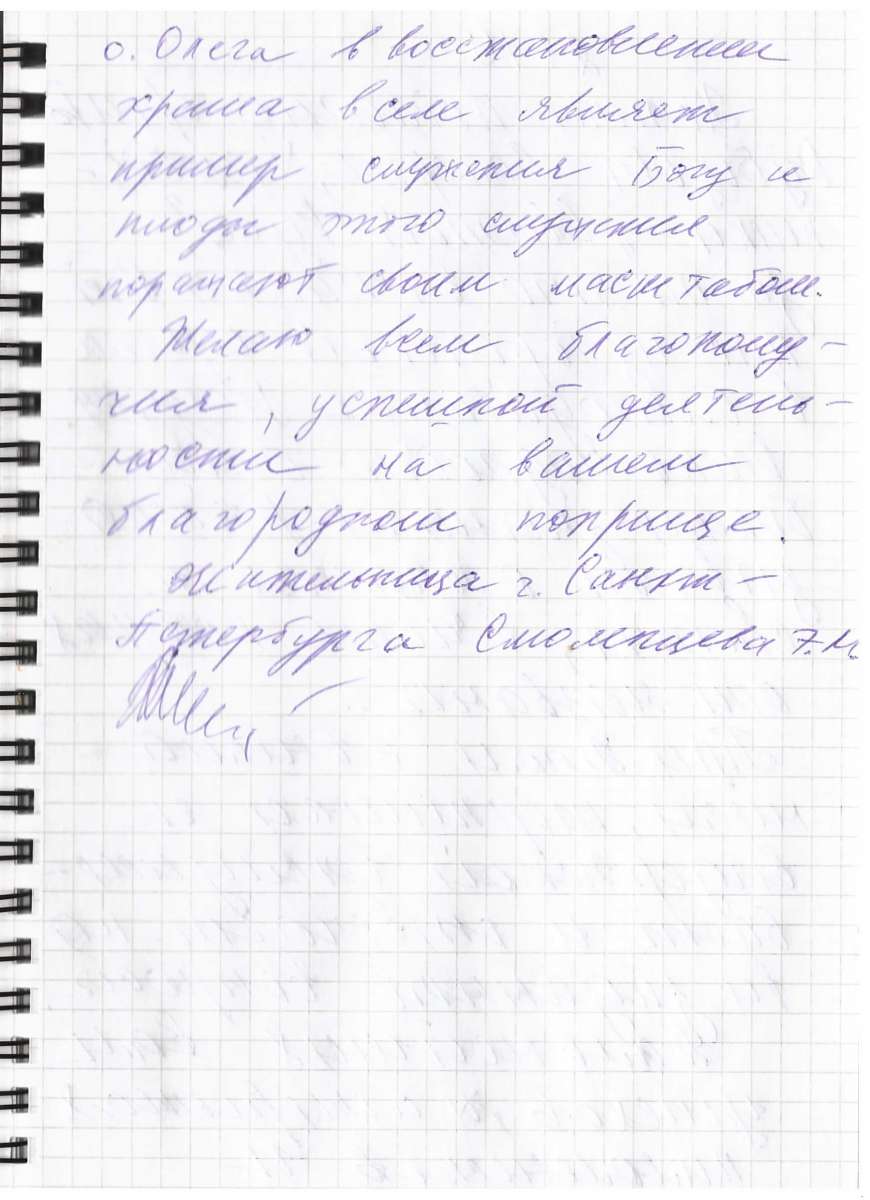 о. Олега в восстановлении
храма в селе являет
пример служения Богу и
плоды этого служения
поражают своим масштабом.
Желаю всем благополу-
чия, успешной деятель-
ности на вашем
благородном поприще.
Жительница г. Санкт-
Петербурга Смоленцева